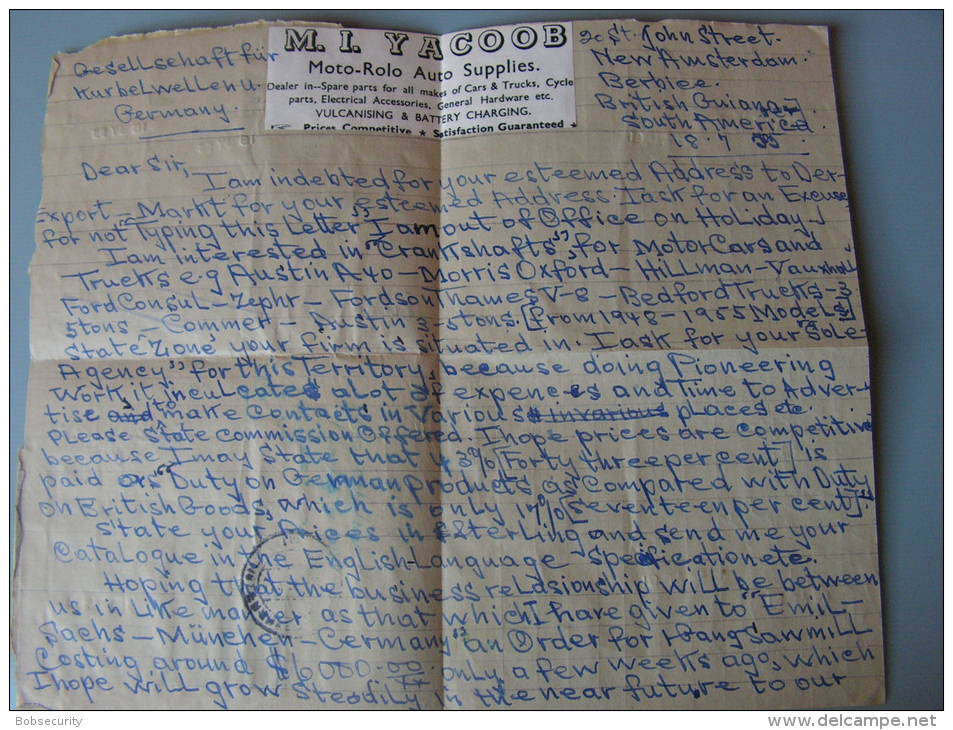 Gesellschaft für
Kurbelwellen u.
Germany.
M. I. YACOOB
Moto-Rolo Auto Supplies.
Dealer in--Spare parts for all makes of Cars & Trucks, Cycle
parts, Electrical Accessories, General Hardware etc.
VULCANISING & BATTERY CHARGING.
Prices Competitive ★ Satisfaction Guaranteed ★
St. John Street.
New Amsterdam.
Berbice.
British Guiana
South America.
18.7.55.
Dear Sir,
I am indebted for your esteemed Address to Der-
Export-Markt for your esteemed Address. I ask for an Excuse
for not "Typing this Letter", I am out of Office on Holiday.
I am interested in "Crankshafts", for Motor Cars and
Trucks e.g Austin A40 - Morris Oxford - Hillman - Vauxhall
Ford Consul - Zephr - Fordson Thames V-8 - Bedford Trucks - 3
5tons - Commer - Austin 3-5tons. [From 1948-1955 Models]
State Zone your firm is situated in. I ask for your "Sole-
Agency" for this Territory, because doing Pioneering
Work, it inculcates a Lot of expences and time to Adver-
tise and to make contacts in various in various places etc.
Please state commission Offered. I hope prices are competitive
because I may state that 43% [Forty three per cent] is
paid as "Duty on German products as compared with Duty
on British Goods, which is only 17% [Seventeen per cent].
State your Prices in Sterling and send me your
Catalogue in the English-Language Specification etc.
Hoping that the business relasionship will be between
us in like manner as that which I have given to "Emil-
Sachs - München - Germany" an Order for 1 Gang Sawmill
Costing around £6000-00 only, a few weeks ago, which
I hope will grow Steadily in the near future to our
Bobsecurity
delcampe.net